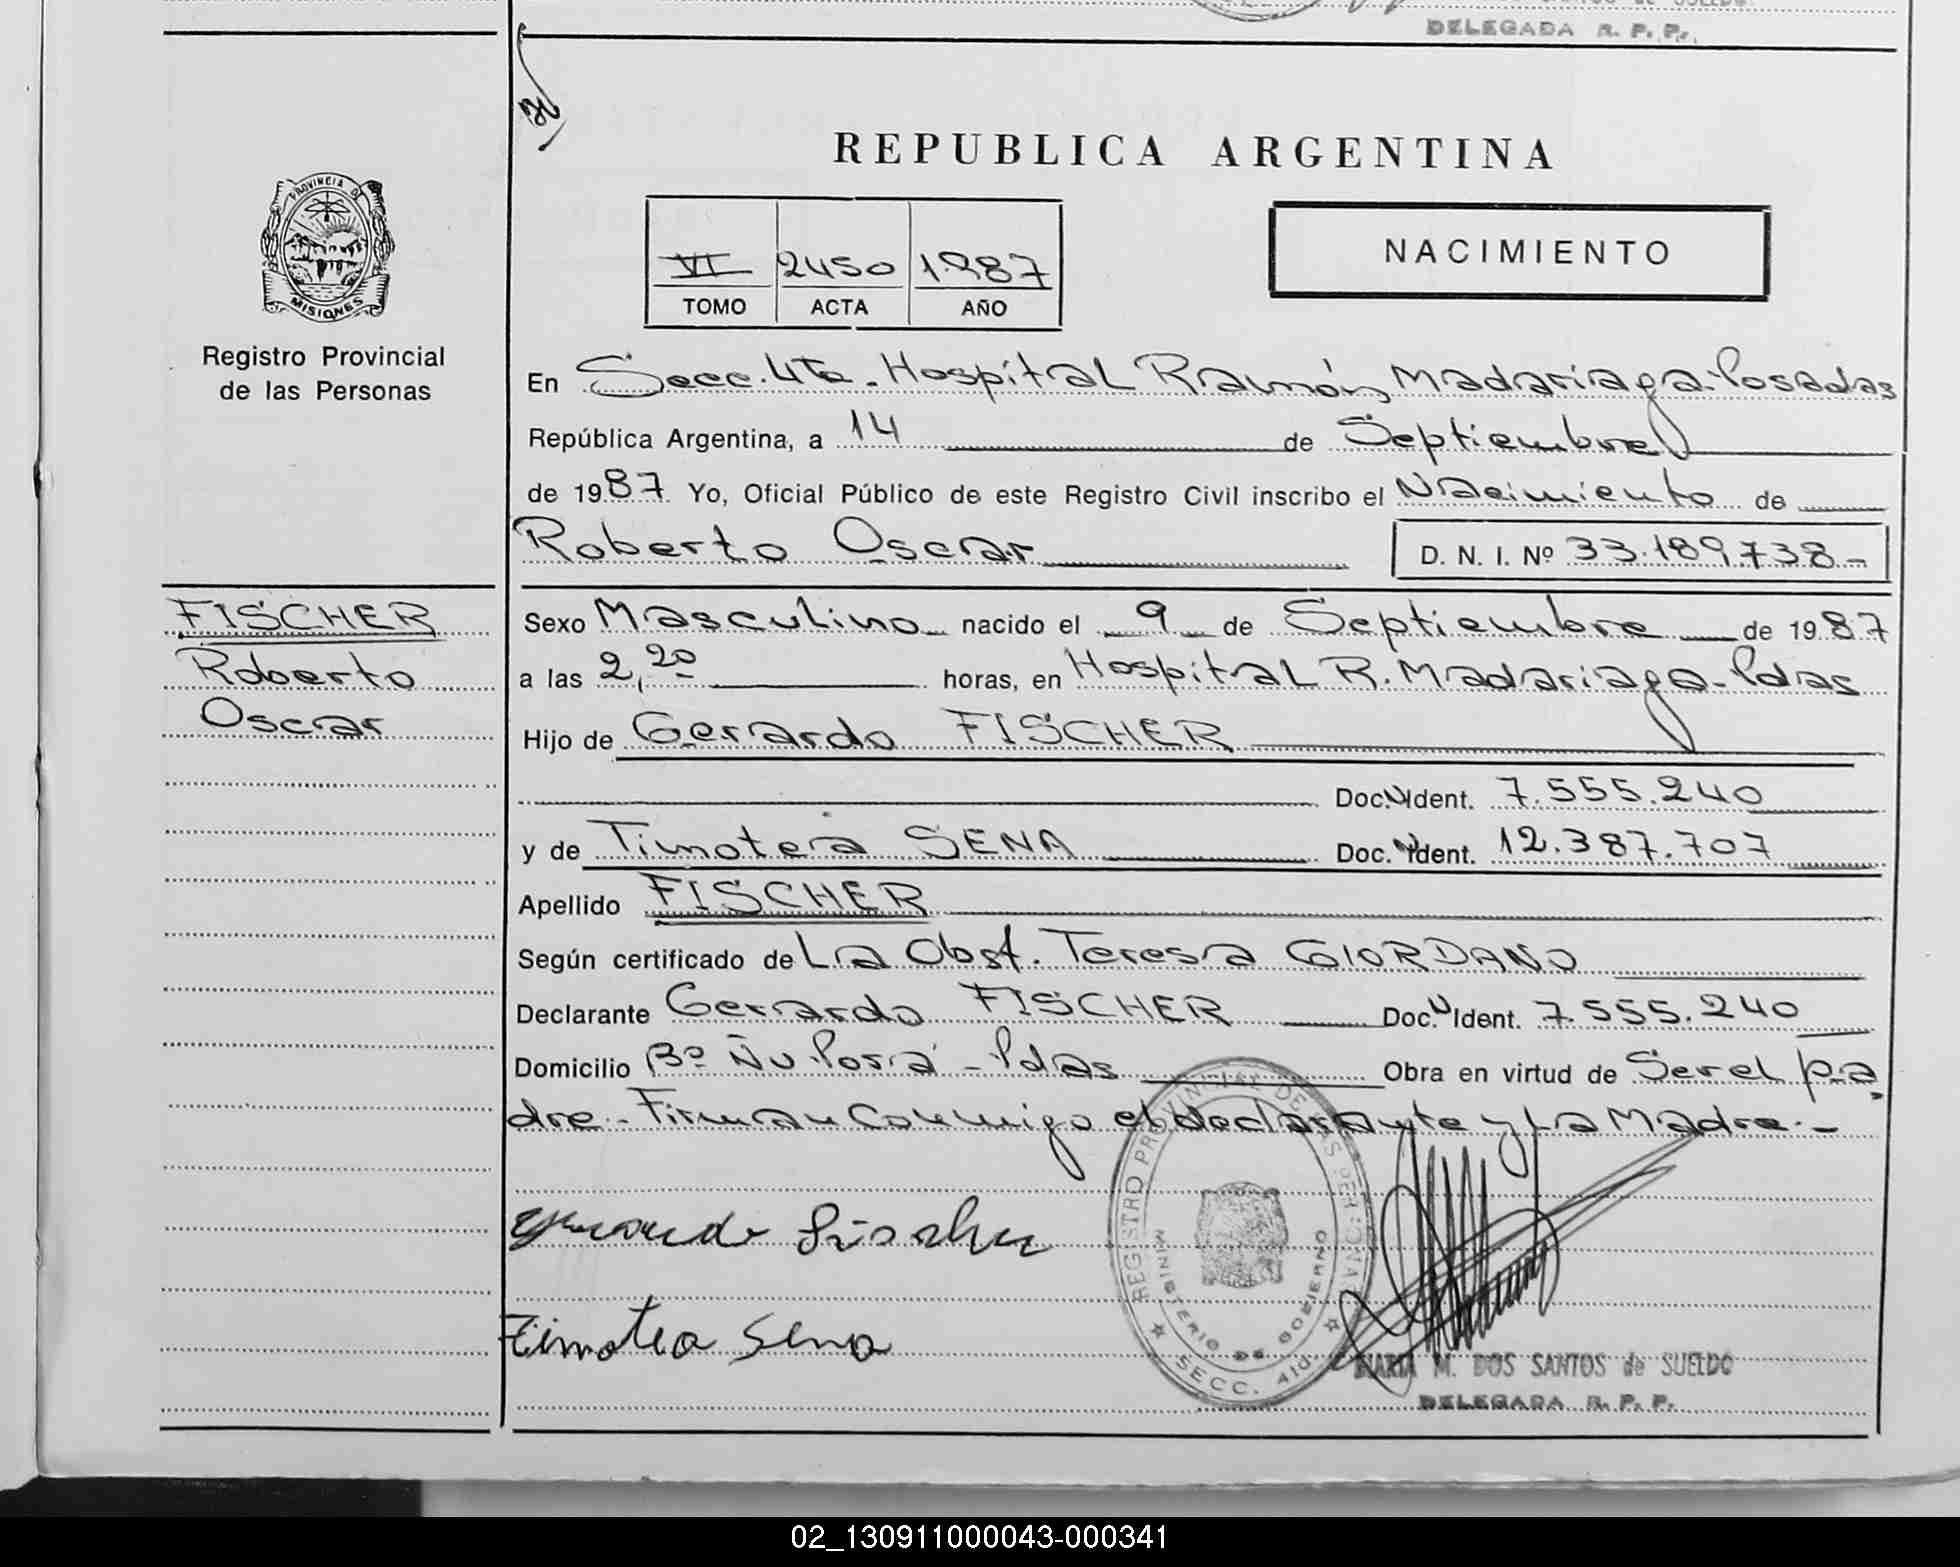 DELEGADA R. P. P.
REPUBLICA ARGENTINA
PROVINCIA DE
MISIONES
Registro Provincial
de las Personas
VI 2450 1987
TOMO ACTA AÑO
NACIMIENTO
En Secc. 4ta. Hospital Ramón Madariaga-Posadas
República Argentina, a 14 de Septiembre
de 1987 Yo, Oficial Público de este Registro Civil inscribo el Nacimiento de
Roberto Oscar D. N. I. Nº 33.189.738-
FISCHER
Roberto
Oscar
Sexo Masculino nacido el 9 de Septiembre de 1987
a las 2,20 horas, en Hospital R. Madariaga-Pdas
Hijo de Gerardo FISCHER
Doc. Ident. 7.555.240
y de Timotea SENA Doc. Ident. 12.387.707
Apellido FISCHER
Según certificado de La Obst. Teresa GIORDANO
Declarante Gerardo FISCHER Doc. Ident. 7.555.240
Domicilio Bº Ñu Porá - Pdas Obra en virtud de Ser el pa
dre.- Firman Conmigo el declarante y La Madre.-
Gerardo Fischer
Timotea Sena
REGISTRO PROVINCIAL DE LAS PERSONAS
MINISTERIO DE GOBIERNO
SECC. 4ta
MARIA M. DOS SANTOS de SUELDO
DELEGADA R. P. P.
02_130911000043-000341